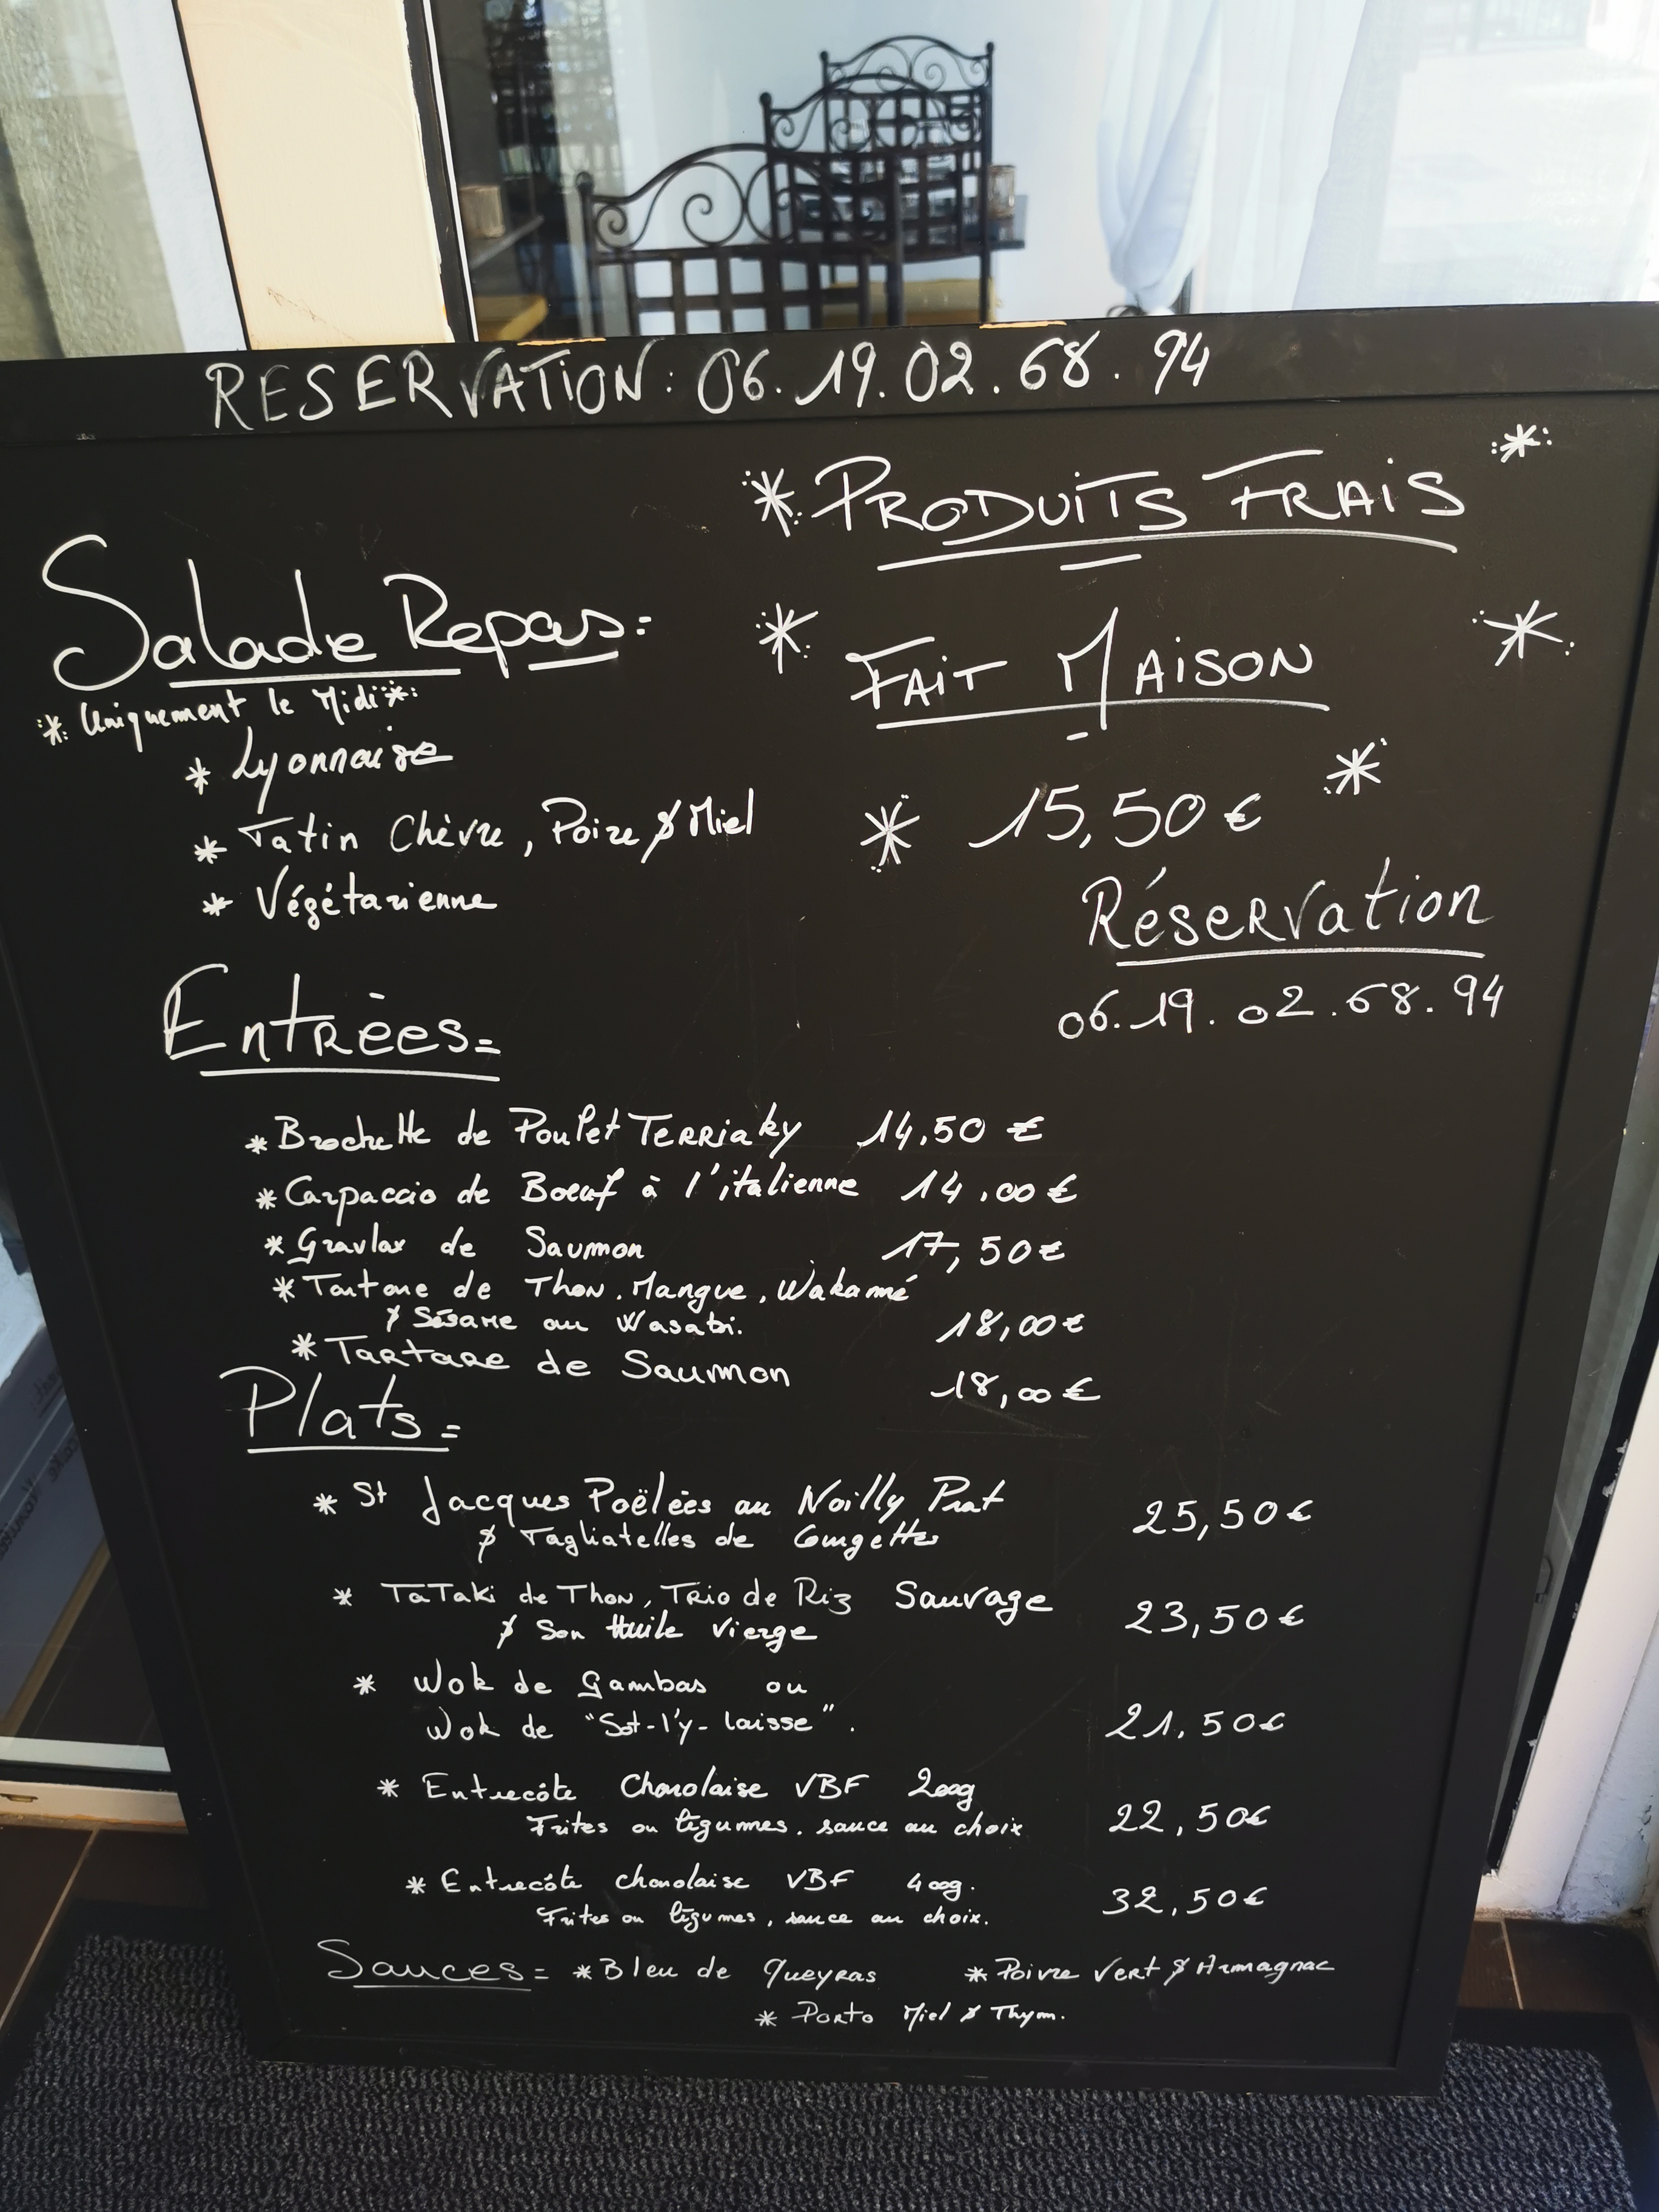 RESERVATION: 06.19.02.68.94
* PRODUITS FRAIS *
Salade Repas:
* FAIT MAISON *
* Uniquement le Midi *
* Lyonnaise
* Tatin Chèvre, Poire & Miel
* 15,50 € *
* Végétarienne
Réservation
06.19.02.68.94
Entrées=
* Brochette de Poulet TERRiaky 14,50 €
* Carpaccio de Boeuf à l'italienne 14,00 €
* Gravlax de Saumon 17,50 €
* Tartare de Thon, Mangue, Wakamé
& Sésame au Wasabi. 18,00 €
* Tartare de Saumon 18,00 €
Plats=
* St Jacques Poëlées au Noilly Prat 25,50 €
& Tagliatelles de Courgettes
* TaTaki de Thon, Trio de Riz Sauvage 23,50 €
& Son Huile Vierge
* Wok de Gambas ou
Wok de "Sot-l'y-laisse". 21,50 €
* Entrecôte Charolaise VBF 200g 22,50 €
Frites ou légumes, sauce au choix
* Entrecôte charolaise VBF 400g. 32,50 €
Frites ou légumes, sauce au choix.
Sauces= * Bleu de Queyras * Poivre Vert & Armagnac
* Porto Miel & Thym.